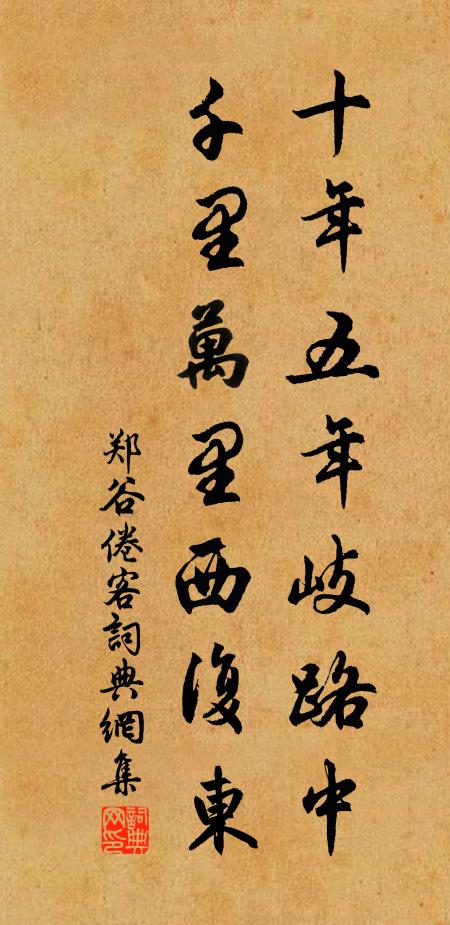 十年五年岐路中
千里萬里西復東
郑谷倦客詞典網集
詞典网印